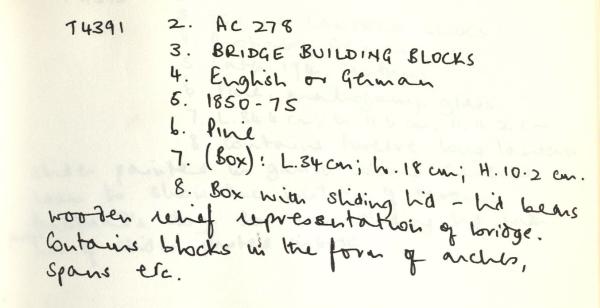 T4391 2. AC 278
3. BRIDGE BUILDING BLOCKS
4. English or German
5. 1850-75
6. Pine
7. (Box): L.34cm; W.18 cm; H.10.2 cm.
8. Box with sliding lid - lid bears
wooden relief representation of bridge.
Contains blocks in the form of arches,
spans etc.